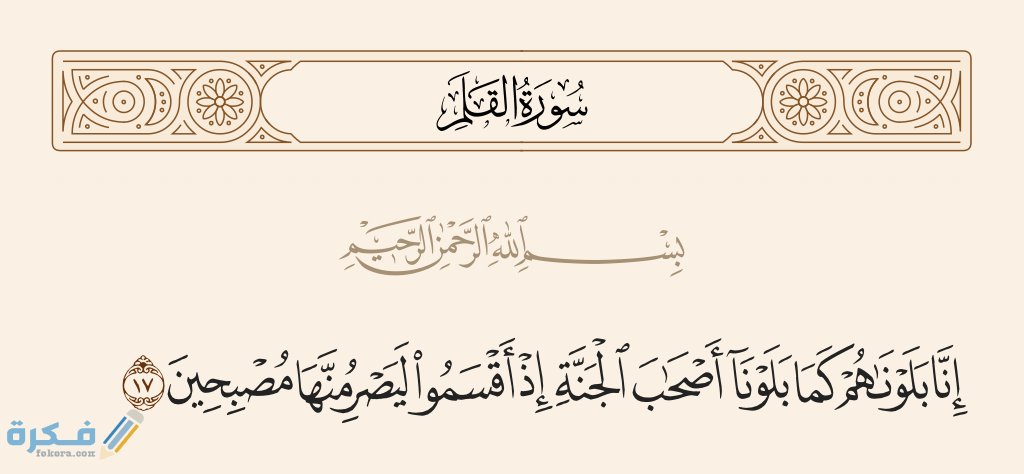 سُورَةُ القَلَمِ
بِسْمِ ٱللَّهِ ٱلرَّحْمَٰنِ ٱلرَّحِيمِ
إِنَّا بَلَوْنَٰهُمْ كَمَا بَلَوْنَآ أَصْحَٰبَ ٱلْجَنَّةِ إِذْ أَقْسَمُوا۟ لَيَصْرِمُنَّهَا مُصْبِحِينَ ١٧
فكرة
fekera.com